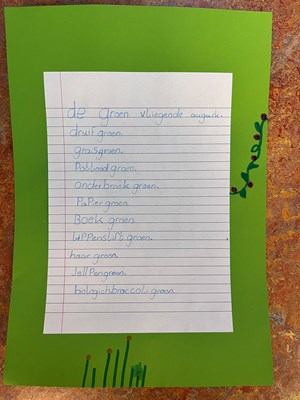 de groen vliegende augurk.
druif groen.
grasgroen.
Potlood groen.
onderbroek groen.
PaPier groen
Boek groen
liPPenstift groen.
haar groen.
JellPen groen.
biologisch broccoli groen.